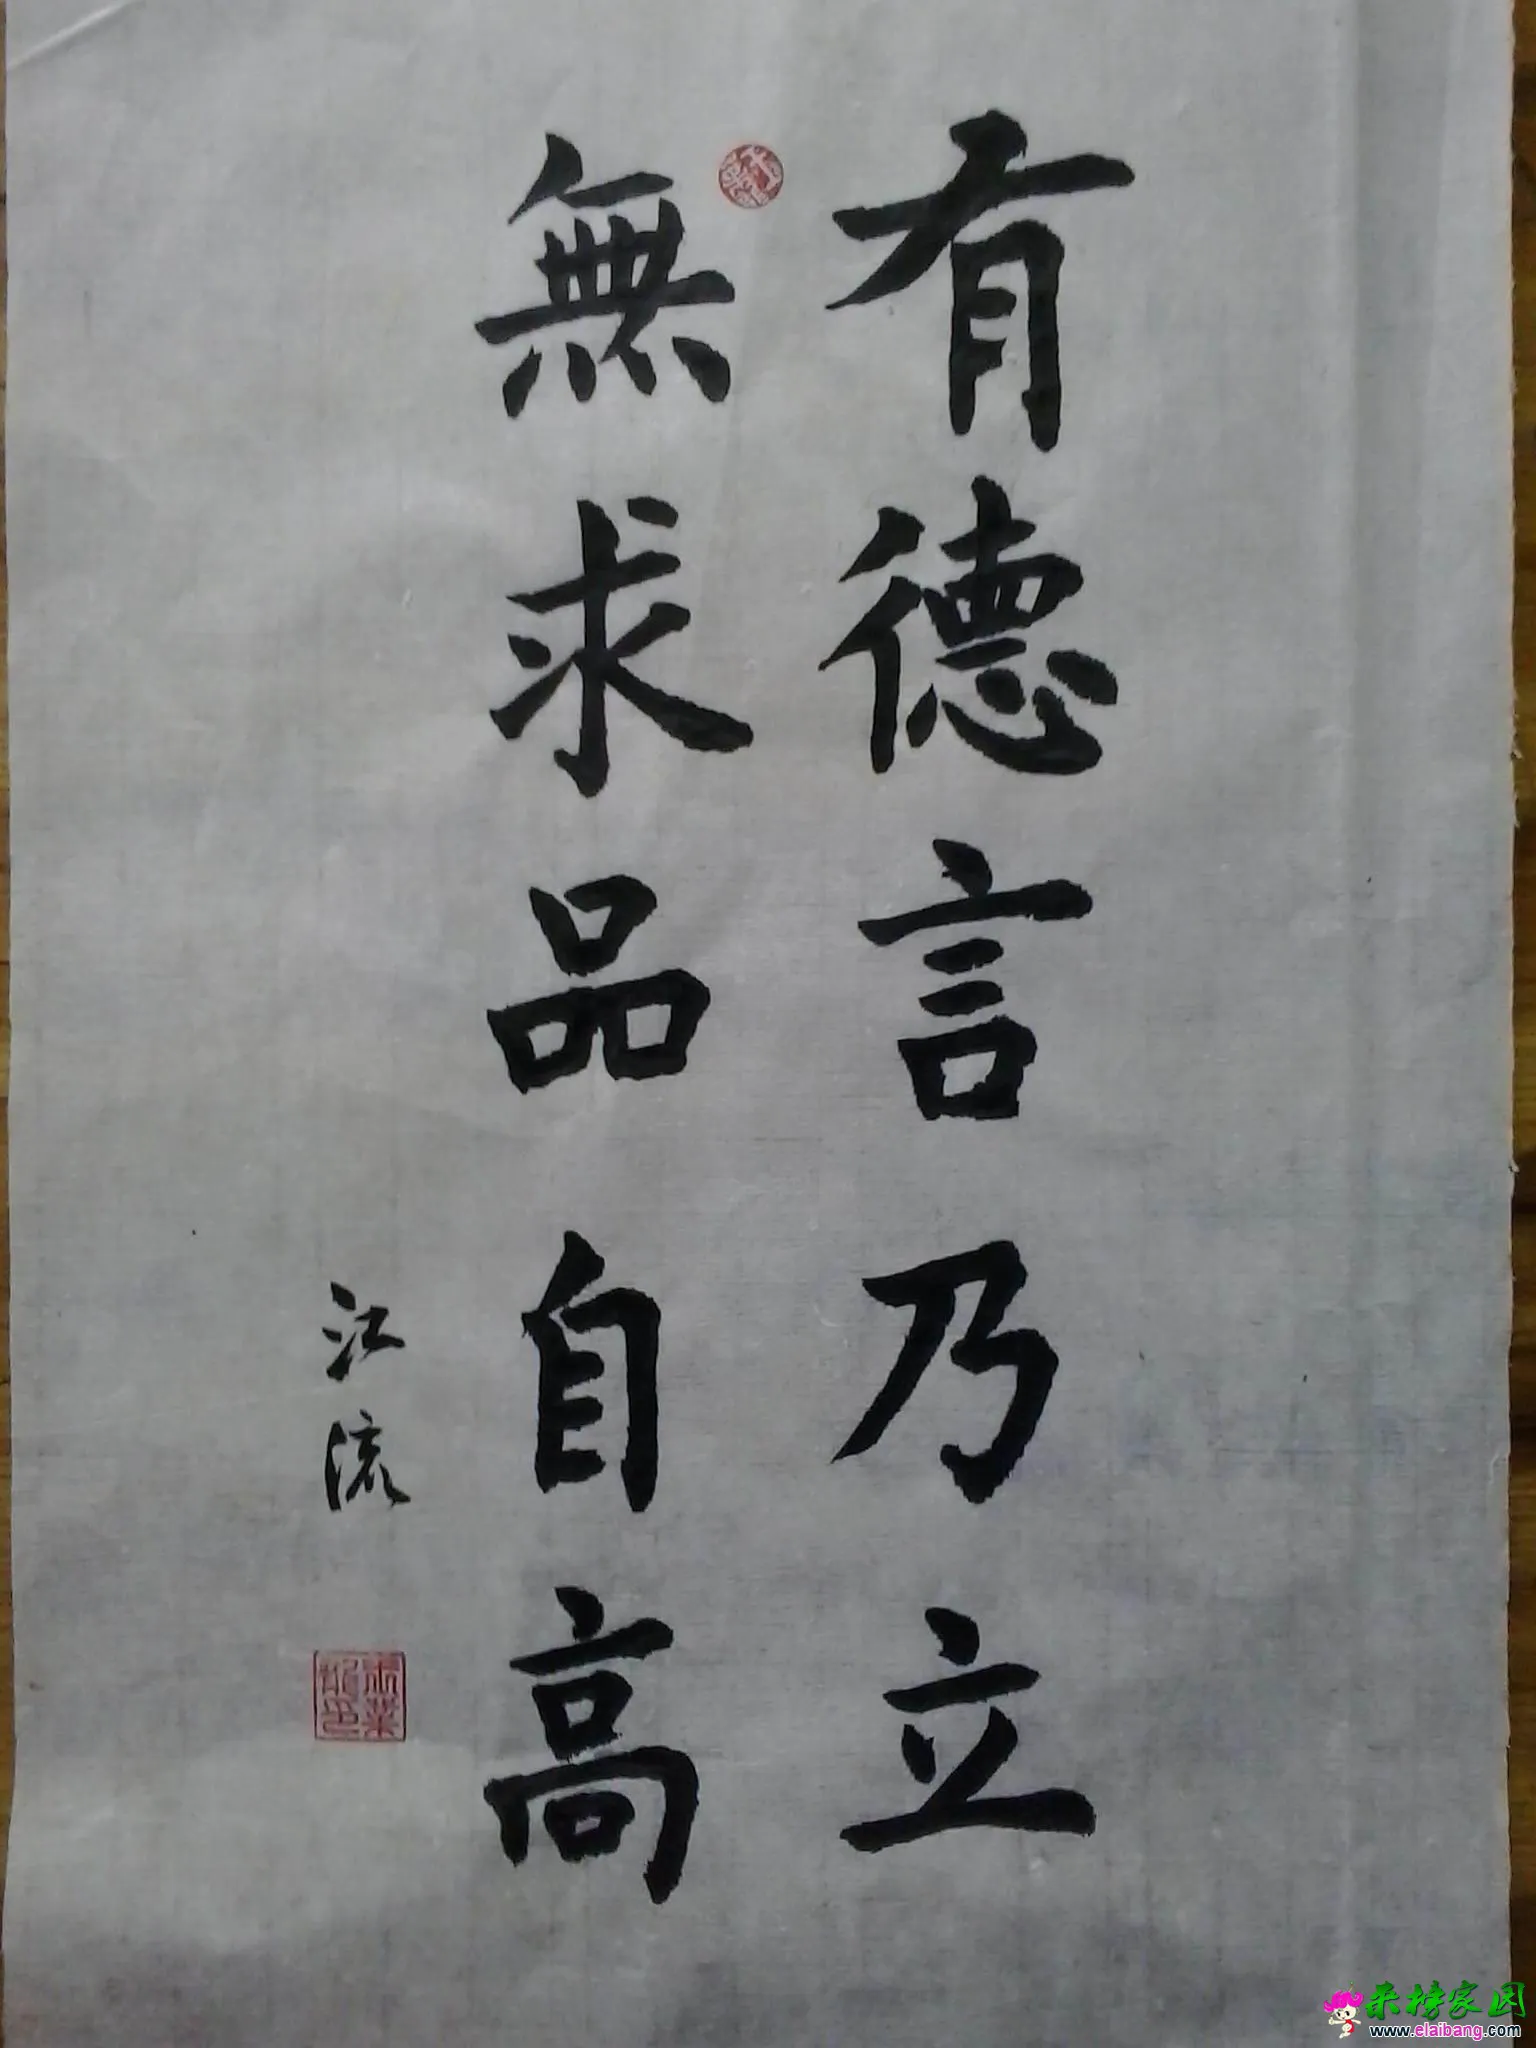 有德言乃立
無求品自高
江流
来榜家园
www.elaibang.com